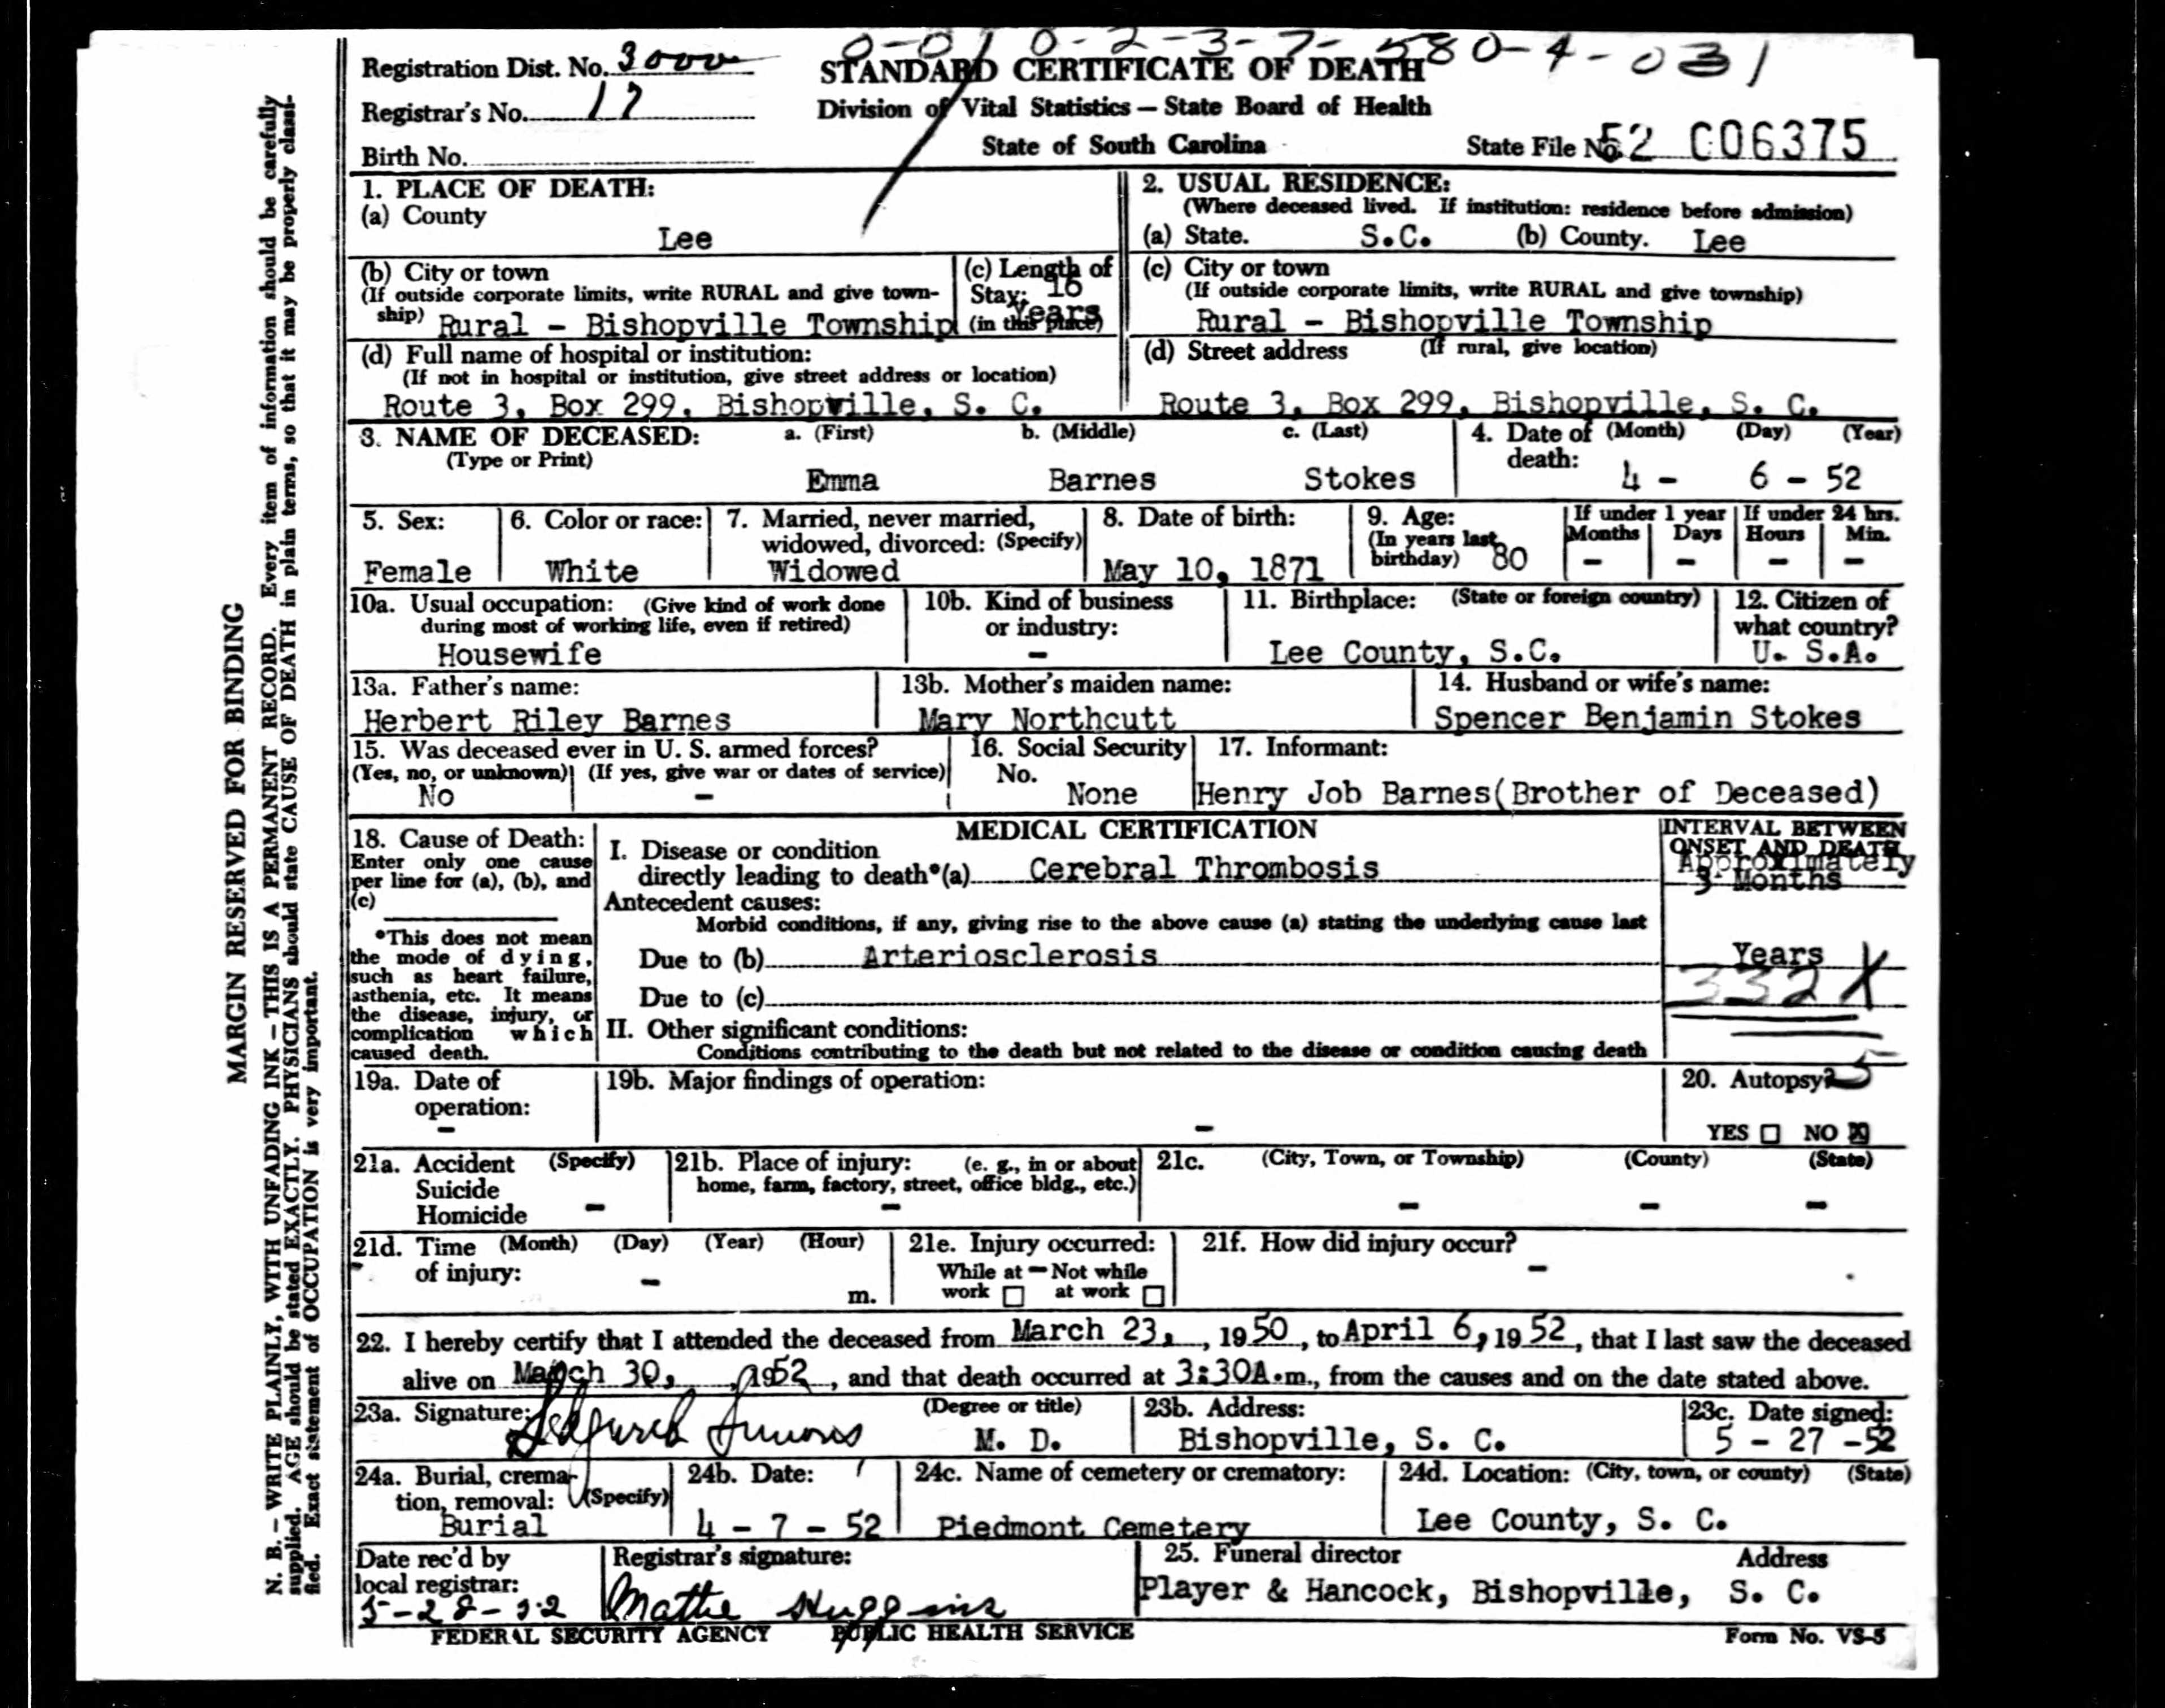 0-0 1 0-2-3-7-580-4-031
Registration Dist. No. 3000
STANDARD CERTIFICATE OF DEATH
Registrar's No. 17
Division of Vital Statistics — State Board of Health
Birth No.
State of South Carolina
State File No. 52 C06375
1. PLACE OF DEATH:
(a) County
Lee
2. USUAL RESIDENCE:
(Where deceased lived. If institution: residence before admission)
(a) State. S.C. (b) County. Lee
(b) City or town
(If outside corporate limits, write RURAL and give town-
ship) Rural - Bishopville Township
(c) Length of
Stay: 16
Years
(in this place)
(c) City or town
(If outside corporate limits, write RURAL and give township)
Rural - Bishopville Township
(d) Full name of hospital or institution:
(If not in hospital or institution, give street address or location)
Route 3, Box 299, Bishopville, S. C.
(d) Street address (If rural, give location)
Route 3, Box 299, Bishopville, S. C.
3. NAME OF DECEASED: a. (First) b. (Middle) c. (Last)
(Type or Print)
Emma Barnes Stokes
4. Date of (Month) (Day) (Year)
death:
4 - 6 - 52
5. Sex:
Female
6. Color or race:
White
7. Married, never married,
widowed, divorced: (Specify)
Widowed
8. Date of birth:
May 10, 1871
9. Age:
(In years last
birthday) 80
If under 1 year If under 24 hrs.
Months Days Hours Min.
- - - -
10a. Usual occupation: (Give kind of work done
during most of working life, even if retired)
Housewife
10b. Kind of business
or industry:
-
11. Birthplace: (State or foreign country)
Lee County, S.C.
12. Citizen of
what country?
U. S.A.
13a. Father's name:
Herbert Riley Barnes
13b. Mother's maiden name:
Mary Northcutt
14. Husband or wife's name:
Spencer Benjamin Stokes
15. Was deceased ever in U. S. armed forces?
(Yes, no, or unknown) (If yes, give war or dates of service)
No -
16. Social Security
No.
None
17. Informant:
Henry Job Barnes(Brother of Deceased)
18. Cause of Death:
Enter only one cause
per line for (a), (b), and
(c)
*This does not mean
the mode of dying,
such as heart failure,
asthenia, etc. It means
the disease, injury, or
complication which
caused death.
MEDICAL CERTIFICATION
I. Disease or condition
directly leading to death*(a) Cerebral Thrombosis
Antecedent causes:
Morbid conditions, if any, giving rise to the above cause (a) stating the underlying cause last
Due to (b) Arteriosclerosis
Due to (c)
II. Other significant conditions:
Conditions contributing to the death but not related to the disease or condition causing death
INTERVAL BETWEEN
ONSET AND DEATH
Approximately
3 Months
Years
332 X
5
19a. Date of
operation:
-
19b. Major findings of operation:
-
20. Autopsy?
YES NO X
21a. Accident (Specify)
Suicide
Homicide -
21b. Place of injury: (e. g., in or about
home, farm, factory, street, office bldg., etc.)
-
21c. (City, Town, or Township) (County) (State)
- - -
21d. Time (Month) (Day) (Year) (Hour)
of injury: -
m.
21e. Injury occurred:
While at - Not while
work at work
21f. How did injury occur?
-
22. I hereby certify that I attended the deceased from March 23, , 1950, to April 6, 1952, that I last saw the deceased
alive on March 30, , 1952, and that death occurred at 3:30A.m., from the causes and on the date stated above.
23a. Signature:
(Degree or title)
M. D.
23b. Address:
Bishopville, S. C.
23c. Date signed:
5 - 27 -52
24a. Burial, crema-
tion, removal: (Specify)
Burial
24b. Date:
4 - 7 - 52
24c. Name of cemetery or crematory:
Piedmont Cemetery
24d. Location: (City, town, or county) (State)
Lee County, S. C.
Date rec'd by
local registrar:
5-28-52
Registrar's signature:
Mattie Huggins
25. Funeral director Address
Player & Hancock, Bishopville, S. C.
FEDERAL SECURITY AGENCY PUBLIC HEALTH SERVICE
Form No. VS-5
MARGIN RESERVED FOR BINDING
N. B. – WRITE PLAINLY, WITH UNFADING INK – THIS IS A PERMANENT RECORD. Every item of information should be carefully
supplied. AGE should be stated EXACTLY. PHYSICIANS should state CAUSE OF DEATH in plain terms, so that it may be properly classi-
fied. Exact statement of OCCUPATION is very important.